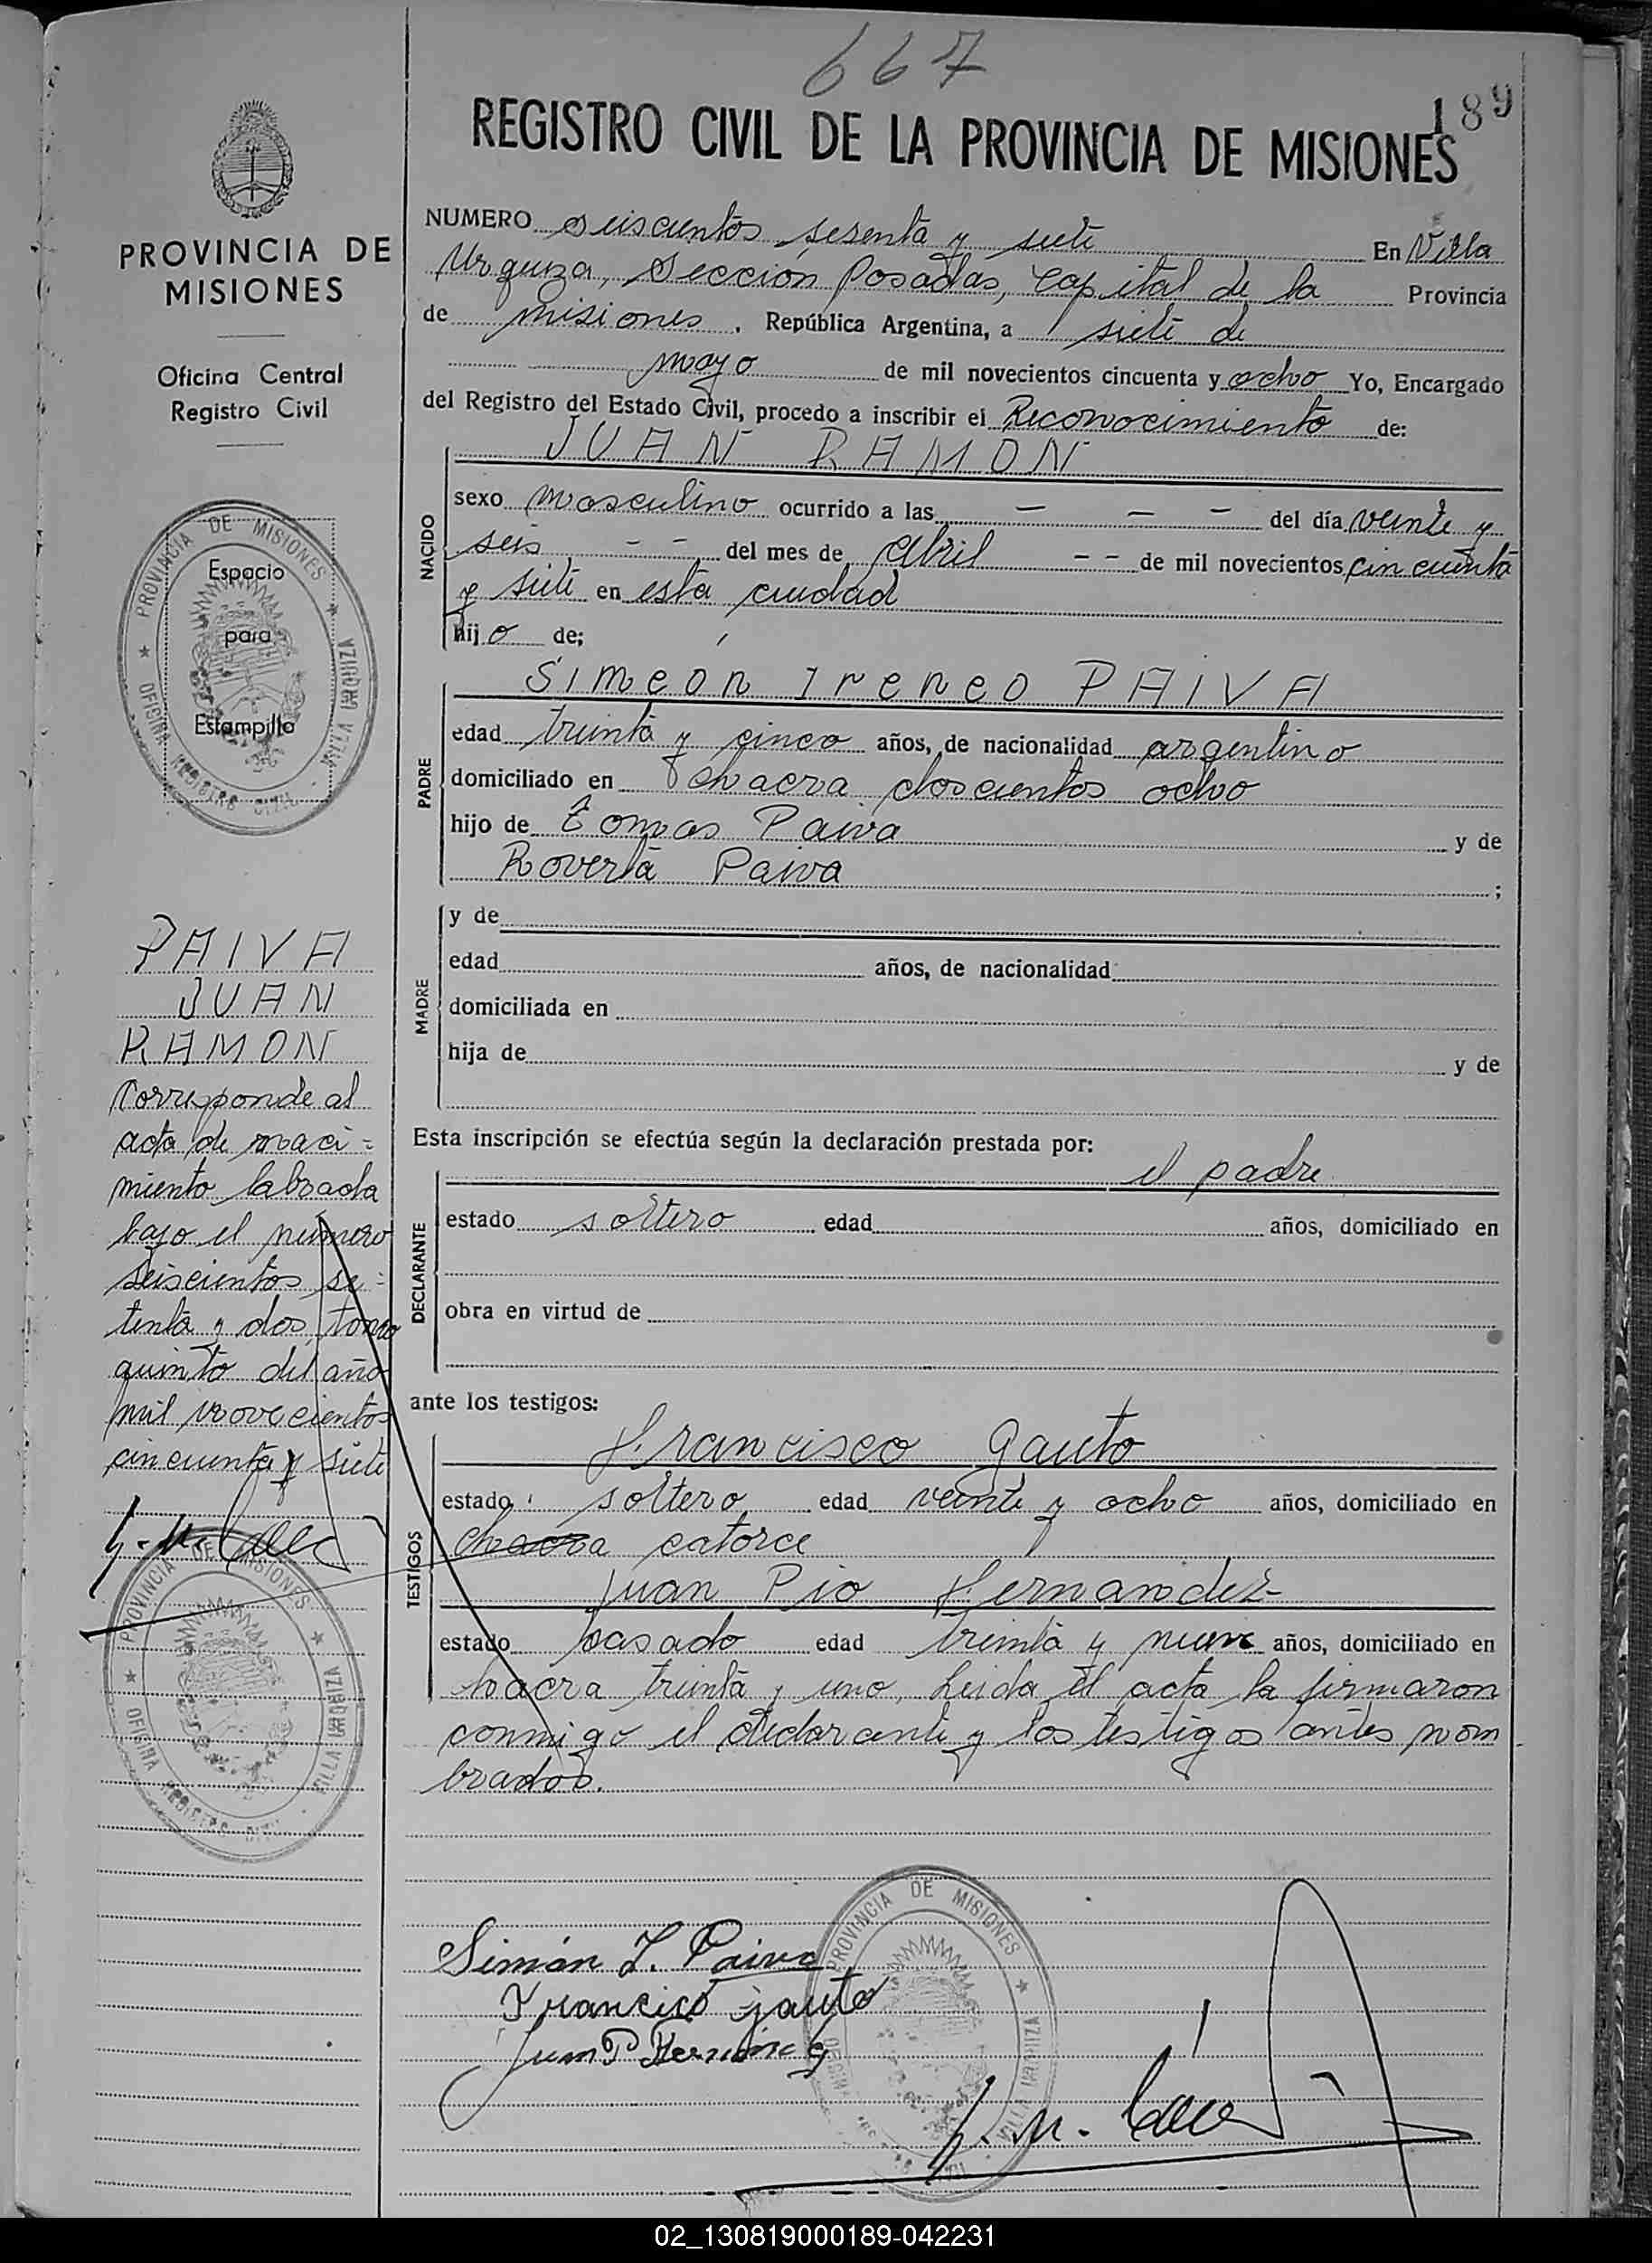 667
189
REGISTRO CIVIL DE LA PROVINCIA DE MISIONES
PROVINCIA DE
MISIONES
Oficina Central
Registro Civil
PROVINCIA DE MISIONES
Espacio
para
Estampilla
OFICINA REGISTRO CIVIL VILLA URQUIZA
PAIVA
JUAN
RAMON
Corresponde al
acta de naci=
miento labrada
bajo el número
seiscientos se=
tenta y dos, tomo
quinto del año
mil novecientos
cincuenta y siete
PROVINCIA DE MISIONES
OFICINA REGISTRO CIVIL VILLA URQUIZA
NUMERO seiscientos sesenta y siete En Villa
Urquiza, Sección Posadas, Capital de la Provincia
de misiones. República Argentina, a siete de
mayo de mil novecientos cincuenta y ocho Yo, Encargado
del Registro del Estado Civil, procedo a inscribir el Reconocimiento de:
JUAN RAMON
NACIDO
sexo masculino ocurrido a las — — — del día veinte y
seis - - del mes de abril - - de mil novecientos cincuenta
y siete en esta ciudad
hijo de;
Simeón Ireneo PAIVA
PADRE
edad treinta y cinco años, de nacionalidad argentino
domiciliado en chacra doscientos ocho
hijo de Tomas Paiva y de
Roverta Paiva ;
MADRE
y de
edad años, de nacionalidad
domiciliada en
hija de y de
Esta inscripción se efectúa según la declaración prestada por:
el padre
DECLARANTE
estado soltero edad años, domiciliado en
obra en virtud de
ante los testigos:
Francisco Gauto
TESTIGOS
estado soltero edad veinte y ocho años, domiciliado en
chacra catorce
Juan Pio Hernandez
estado casado edad treinta y nueve años, domiciliado en
chacra treinta y uno, Leida el acta la firmaron
conmigo el declarante y los testigos antes nom
brados.
Simón I. Paiva
Francisco gauto
Juan P Hernandez
PROVINCIA DE MISIONES
OFICINA REGISTRO CIVIL VILLA URQUIZA
02_130819000189-042231